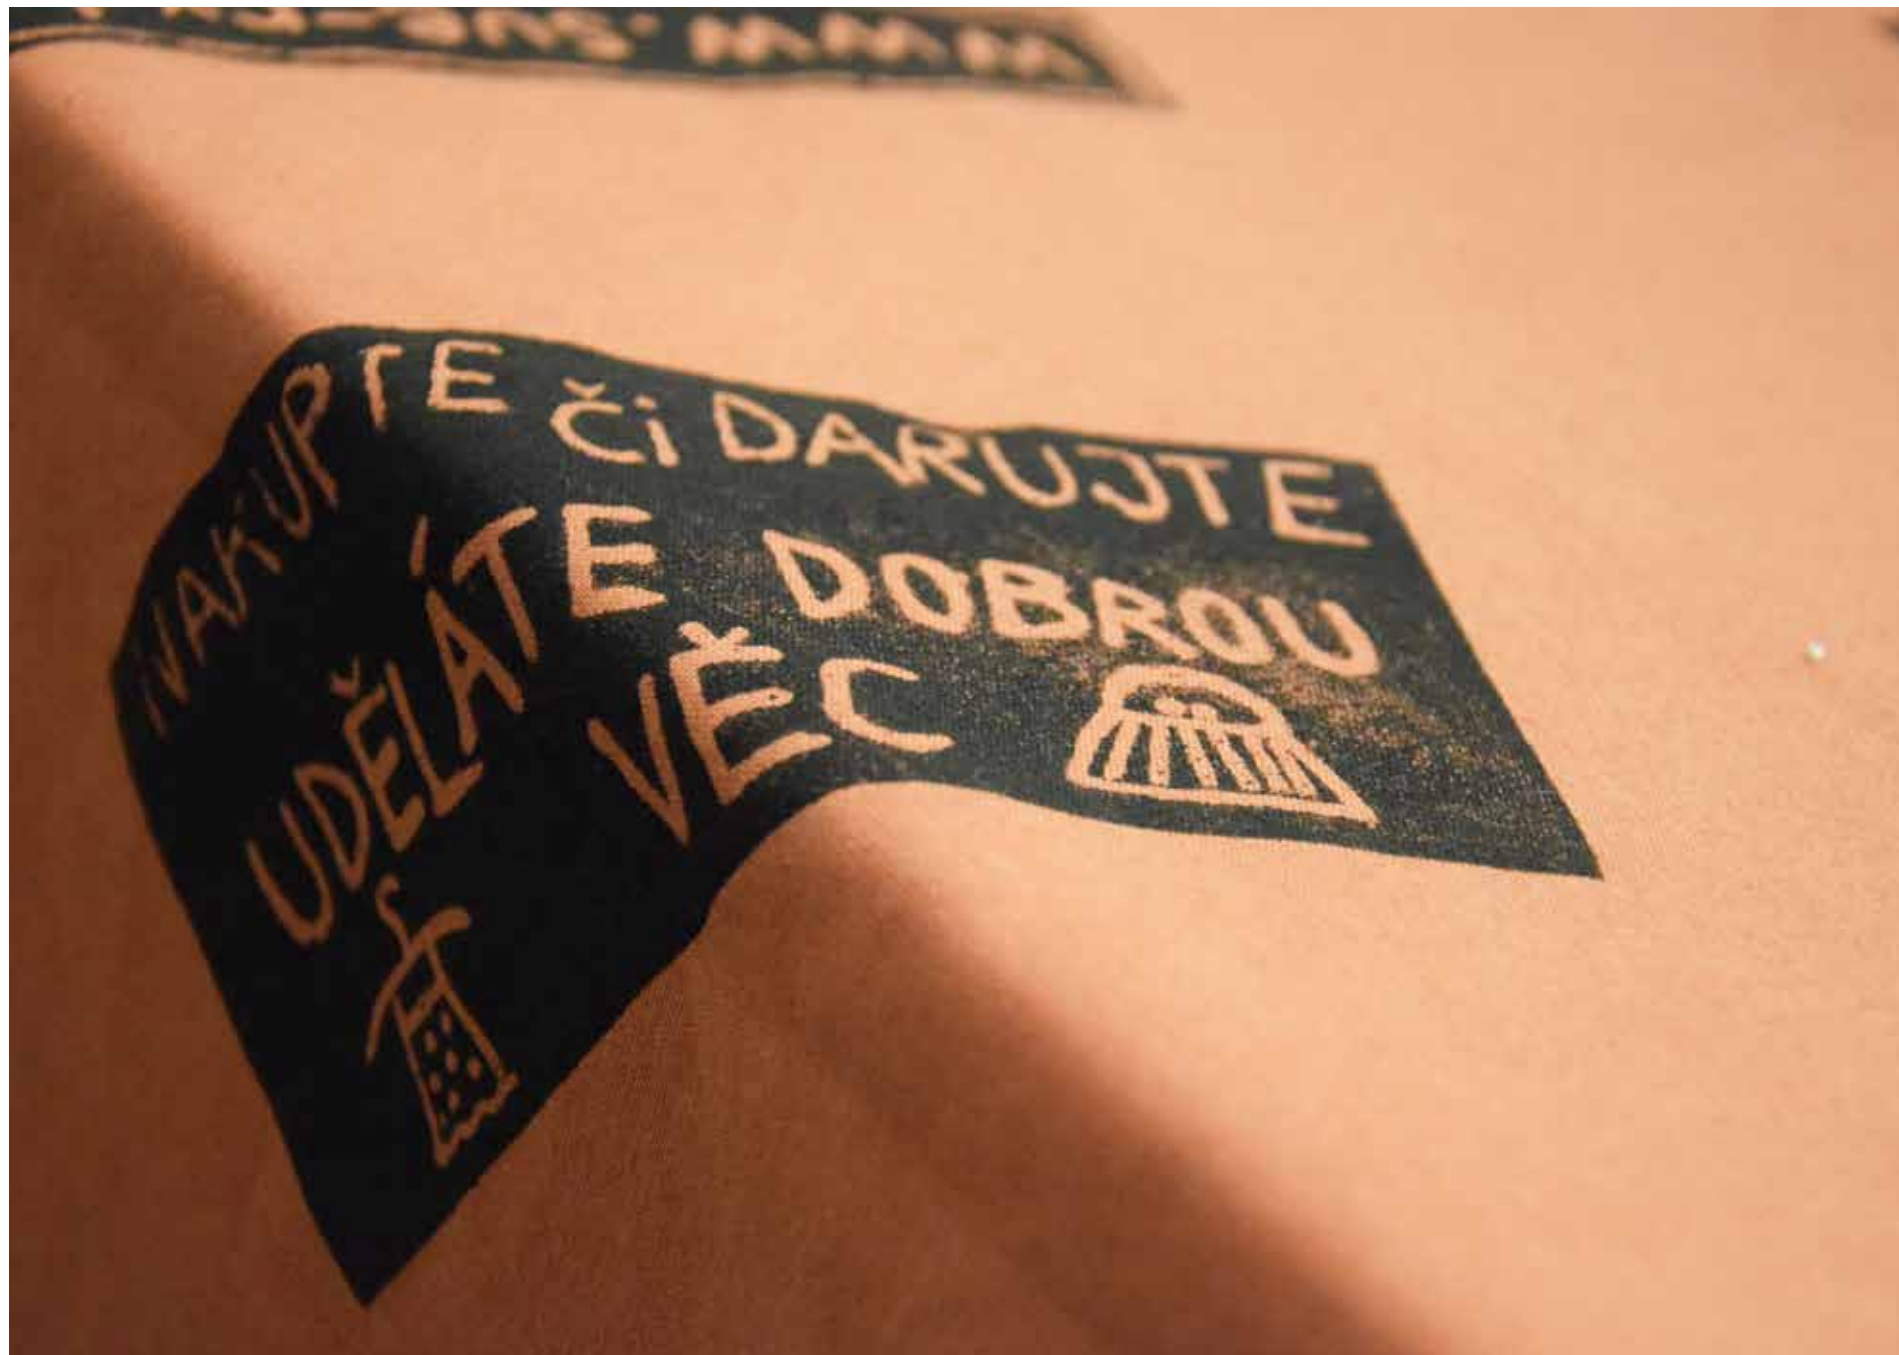 NAKUPTE či DARUJTE
UDĚLÁTE DOBROU
VĚC